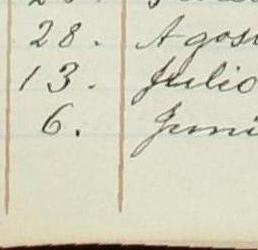 28. Agos
13. Julio
6. Juni